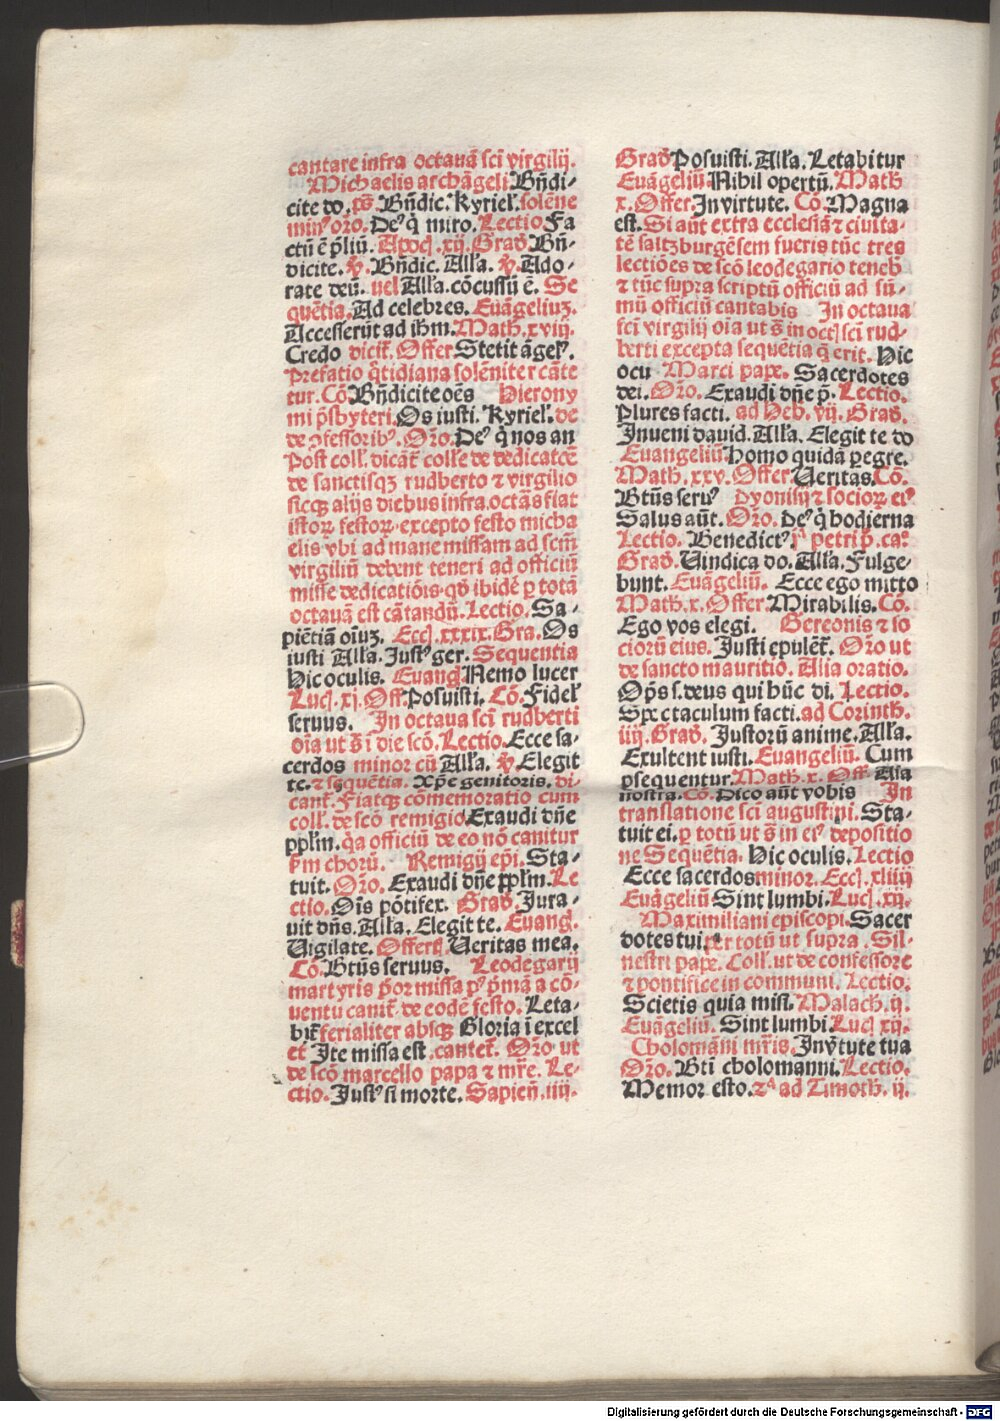 cantare infra octauā sci virgilij.
Michaelis archāgeli Bn̄di-
cite do. ps̄. Bn̄dic. Kyriel. solēne
min⁹ oro. De⁹ q̄ miro. Lectio Fa
ctū ē p̄liū. Apocꝭ .xij. Grad̄ Bn̄-
dicite. ꝟ. Bn̄dic. Alla. ꝟ. Ado-
rate deū. uel Alla. cōcussū ē. Se
quētia. Ad celebres. Euāgeliuꝫ.
Accesserūt ad ihm. Math. xviij.
Credo dicit̄. Offer Stetit āgel⁹.
Prefatio q̄tidiana solēniter cāte
tur. Cō Bn̄dicite oēs Hierony
mi p̄sbyteri. Os iusti. Kyriel. de
de ꝯfessorib⁹. Oro. De⁹ q̄ nos an
Post coll. dicāt̄ colle de dedicatōe
de sanctisqꝫ rudberto ⁊ virgilio
sicqꝫ alijs diebus infra octās fiat
istoꝝ festoꝝ. excepto festo micha
elis vbi ad mane missam ad scm̄
virgiliū debent teneri ad officiū
misse dedicatiōis. qd̄ ibidē ꝑ totā
octauā est cātandū. Lectio. Sa-
piētiā oīuꝫ. Eccꝭ. xxxix. Gra. Os
iusti Alla. Just⁹ ger. Sequentia
Hic oculis. Euangꝭ Nemo lucer
Lucꝭ. xj. Off. Posuisti. Cō. Fidel
seruus. In octaua sci rudberti
oīa ut s̄ ī die scō. Lectio. Ecce sa-
cerdos minor cū Alla. ꝟ Elegit
te. ⁊ sequētia. Xp̄e genitoris. di-
cant̄. Fiatqꝫ cōmemoratio cum
coll. de scō remigio Exaudi dn̄e
pplm̄. q̄a officiū de eo nō canitur
ẜm chorū. Remigij ep̄i. Sta-
tuit. Oro. Exaudi dn̄e pplm̄. Le
ctio. Oīs pōtifex. Grad̄. Jura-
uit dn̄s. Alla. Elegit te. Euangꝭ.
Uigilate. Offert̄. Ueritas mea.
Cō. Btūs seruus. Leodegarij
martyris p̄or missa p⁹ p̄mā a cō-
uentu cant̄ de eodē festo. Leta-
bit̄ ferialiter absqꝫ Gloria ī excel
et Jte missa est. cantet̄. Oro ut
de scō marcello papa ⁊ mr̄e. Le-
ctio. Just⁹ si morte. Sapien̄. iiij.
Grad̄ Posuisti. Alla. Letabitur
Euāgeliū. Nihil opertū. Math
x. Offer Jn virtute. Cō. Magna
est. Si aūt extra ecclesiā ⁊ ciuita-
tē saltzburgēsem fueris tūc tres
lectiōes de scō leodegario teneb̄
⁊ tūc supra scriptū officiū ad sū-
mū officiū cantabis In octaua
sci virgilij oīa ut s̄ in octꝭ sci rud-
berti excepta sequētia q̄ erit. Hic
ocu Marci pape. Sacerdotes
dei. Oro. Exaudi dn̄e p̄. Lectio.
Plures facti. ad Heb. vij. Grad̄.
Jnueni dauid. Alla. Elegit te do
Euangeliū Homo quidā ꝑegre.
Math. xxv. Offer Ueritas. Cō.
Btūs seru⁹ Dyonisij ⁊ socioꝝ ei⁹
Salus aūt. Oro. De⁹ q̄ hodierna
Lectio. Benedict⁹. j ͣ petri p̄. caº
Grad̄. Uindica do. Alla. Fulge-
bunt. Euāgeliū. Ecce ego mitto
Math. x. Offer. Mirabilis. Cō.
Ego vos elegi. Gereonis ⁊ so
ciorū eius. Justi epulēt̄. Oro ut
de sancto mauritio. Alia oratio.
Op̄s s. deus qui hūc di. Lectio.
Spectaculum facti. ad Corinth.
iiij. Grad̄. Justorū anime. Alla.
Exultent iusti. Euangeliū. Cum
ꝑsequentur. Math. x. Off. Aīa
nostra. Cō. Dico aūt vobis In
translatione sci augustini. Sta-
tuit ei. ꝑ totū ut s̄ in ei⁹ depositio
ne Sequētia. Hic oculis. Lectio
Ecce sacerdos minor. Eccꝭ. xliiij
Euāgeliū Sint lumbi. Lucꝭ. xij.
Maximiliani episcopi. Sacer
dotes tui. ꝑer totū ut supra. Sil-
uestri pape. Coll. ut de confessore
⁊ pontifice in communi. Lectio.
Scietis quia misi. Malach. ij.
Euāgeliū. Sint lumbi. Lucꝭ xij.
Cholomāni mr̄is. Jn v̄tute tua
Oro. Bti cholomanni. Lectio.
Memor esto. ⁊ͣ ad Timoth. ij.
Digitalisierung gefördert durch die Deutsche Forschungsgemeinschaft - DFG